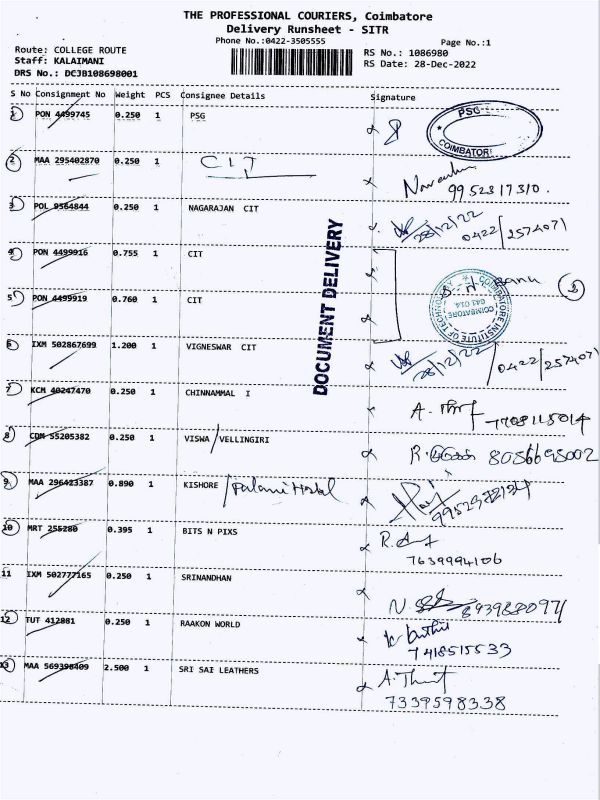 THE PROFESSIONAL COURIERS, Coimbatore
Delivery Runsheet - SITR
Phone No.:0422-3505555 Page No.:1
Route: COLLEGE ROUTE RS No.: 1086980
Staff: KALAIMANI RS Date: 28-Dec-2022
DRS No.: DCJB108698001
S No Consignment No Weight PCS Consignee Details Signature
1 PON 4499745 0.250 1 PSG
PSG
COIMBATORE
2 MAA 295402870 0.250 1 CIT
9952317310.
3 POL 9564844 0.250 1 NAGARAJAN CIT
28/12/22 0422/2574071
DOCUMENT DELIVERY
4 PON 4499916 0.755 1 CIT
Banu 2
COIMBATORE INSTITUTE OF TECHNOLOGY
COIMBATORE
641 014
5 PON 4499919 0.760 1 CIT
6 IXM 502867699 1.200 1 VIGNESWAR CIT
28/12/22 /0422/2574071
7 KCM 40247470 0.250 1 CHINNAMMAL I
7708115014
8 COM 55205382 0.250 1 VISWA/VELLINGIRI
8056695002
9 MAA 296423387 0.890 1 KISHORE /Palani Hotel
10 MRT 255280 0.395 1 BITS N PIXS
7639994106
11 IXM 502777165 0.250 1 SRINANDHAN
12 TUT 412881 0.250 1 RAAKON WORLD
7418515533
13 MAA 569398409 2.500 1 SRI SAI LEATHERS
7339598338